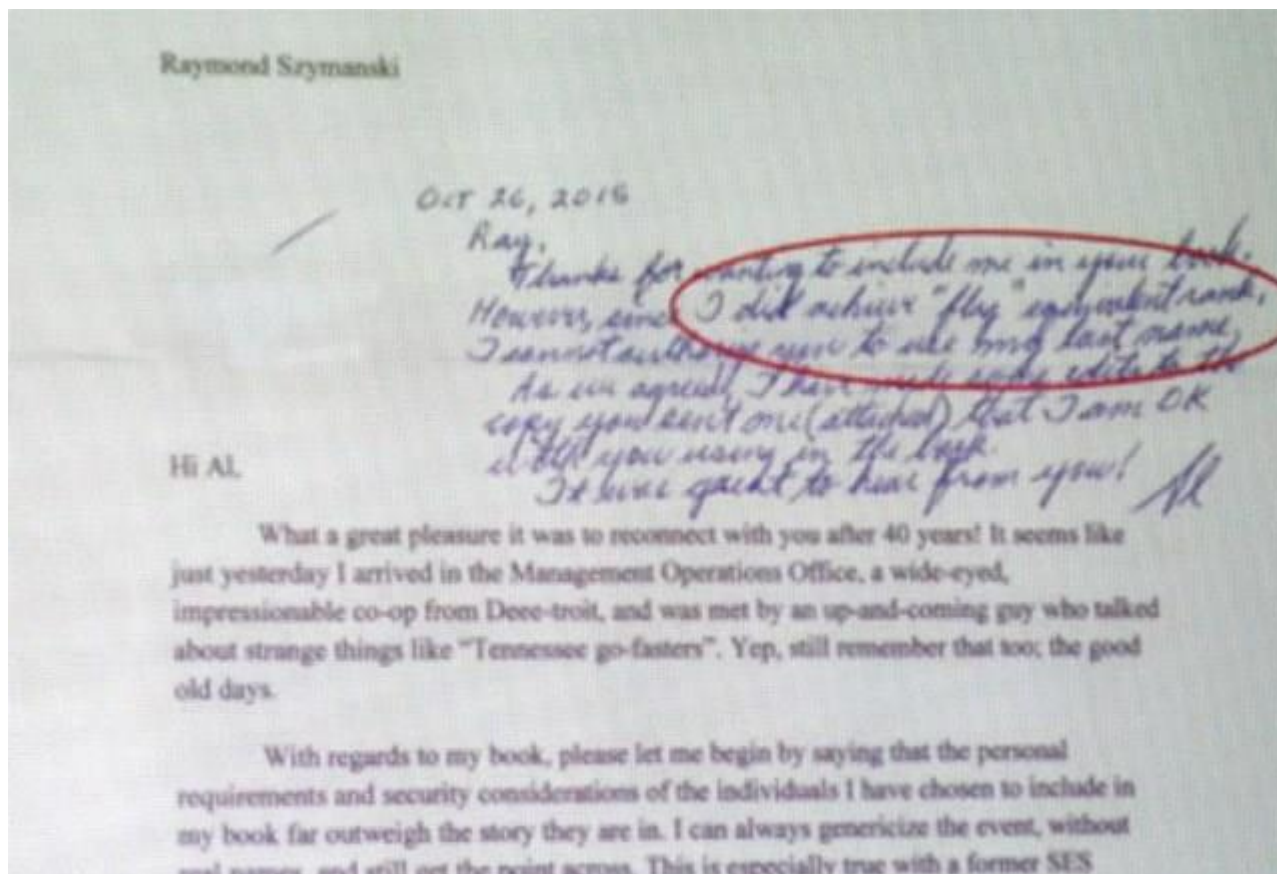 Raymond Szymanski
Oct 26, 2015
Ray,
Thanks for wanting to include me in your book.
However, since I did achieve "flag" equivalent rank,
I cannot authorize you to use my last name.
As we agreed, I have made some edits to the
copy you sent me (attached) that I am OK
with you using in the book.
It was great to hear from you! Al
Hi Al,
What a great pleasure it was to reconnect with you after 40 years! It seems like
just yesterday I arrived in the Management Operations Office, a wide-eyed,
impressionable co-op from Deee-troit, and was met by an up-and-coming guy who talked
about strange things like "Tennessee go-fasters". Yep, still remember that too; the good
old days.
With regards to my book, please let me begin by saying that the personal
requirements and security considerations of the individuals I have chosen to include in
my book far outweigh the story they are in. I can always genericize the event, without
real names, and still get the point across. This is especially true with a former SES